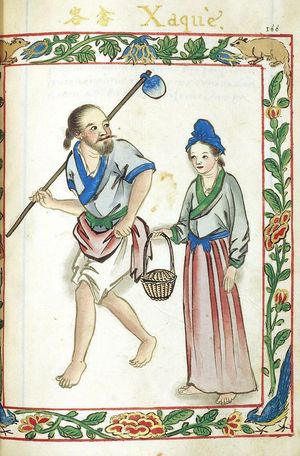 客 Xaquè.
166